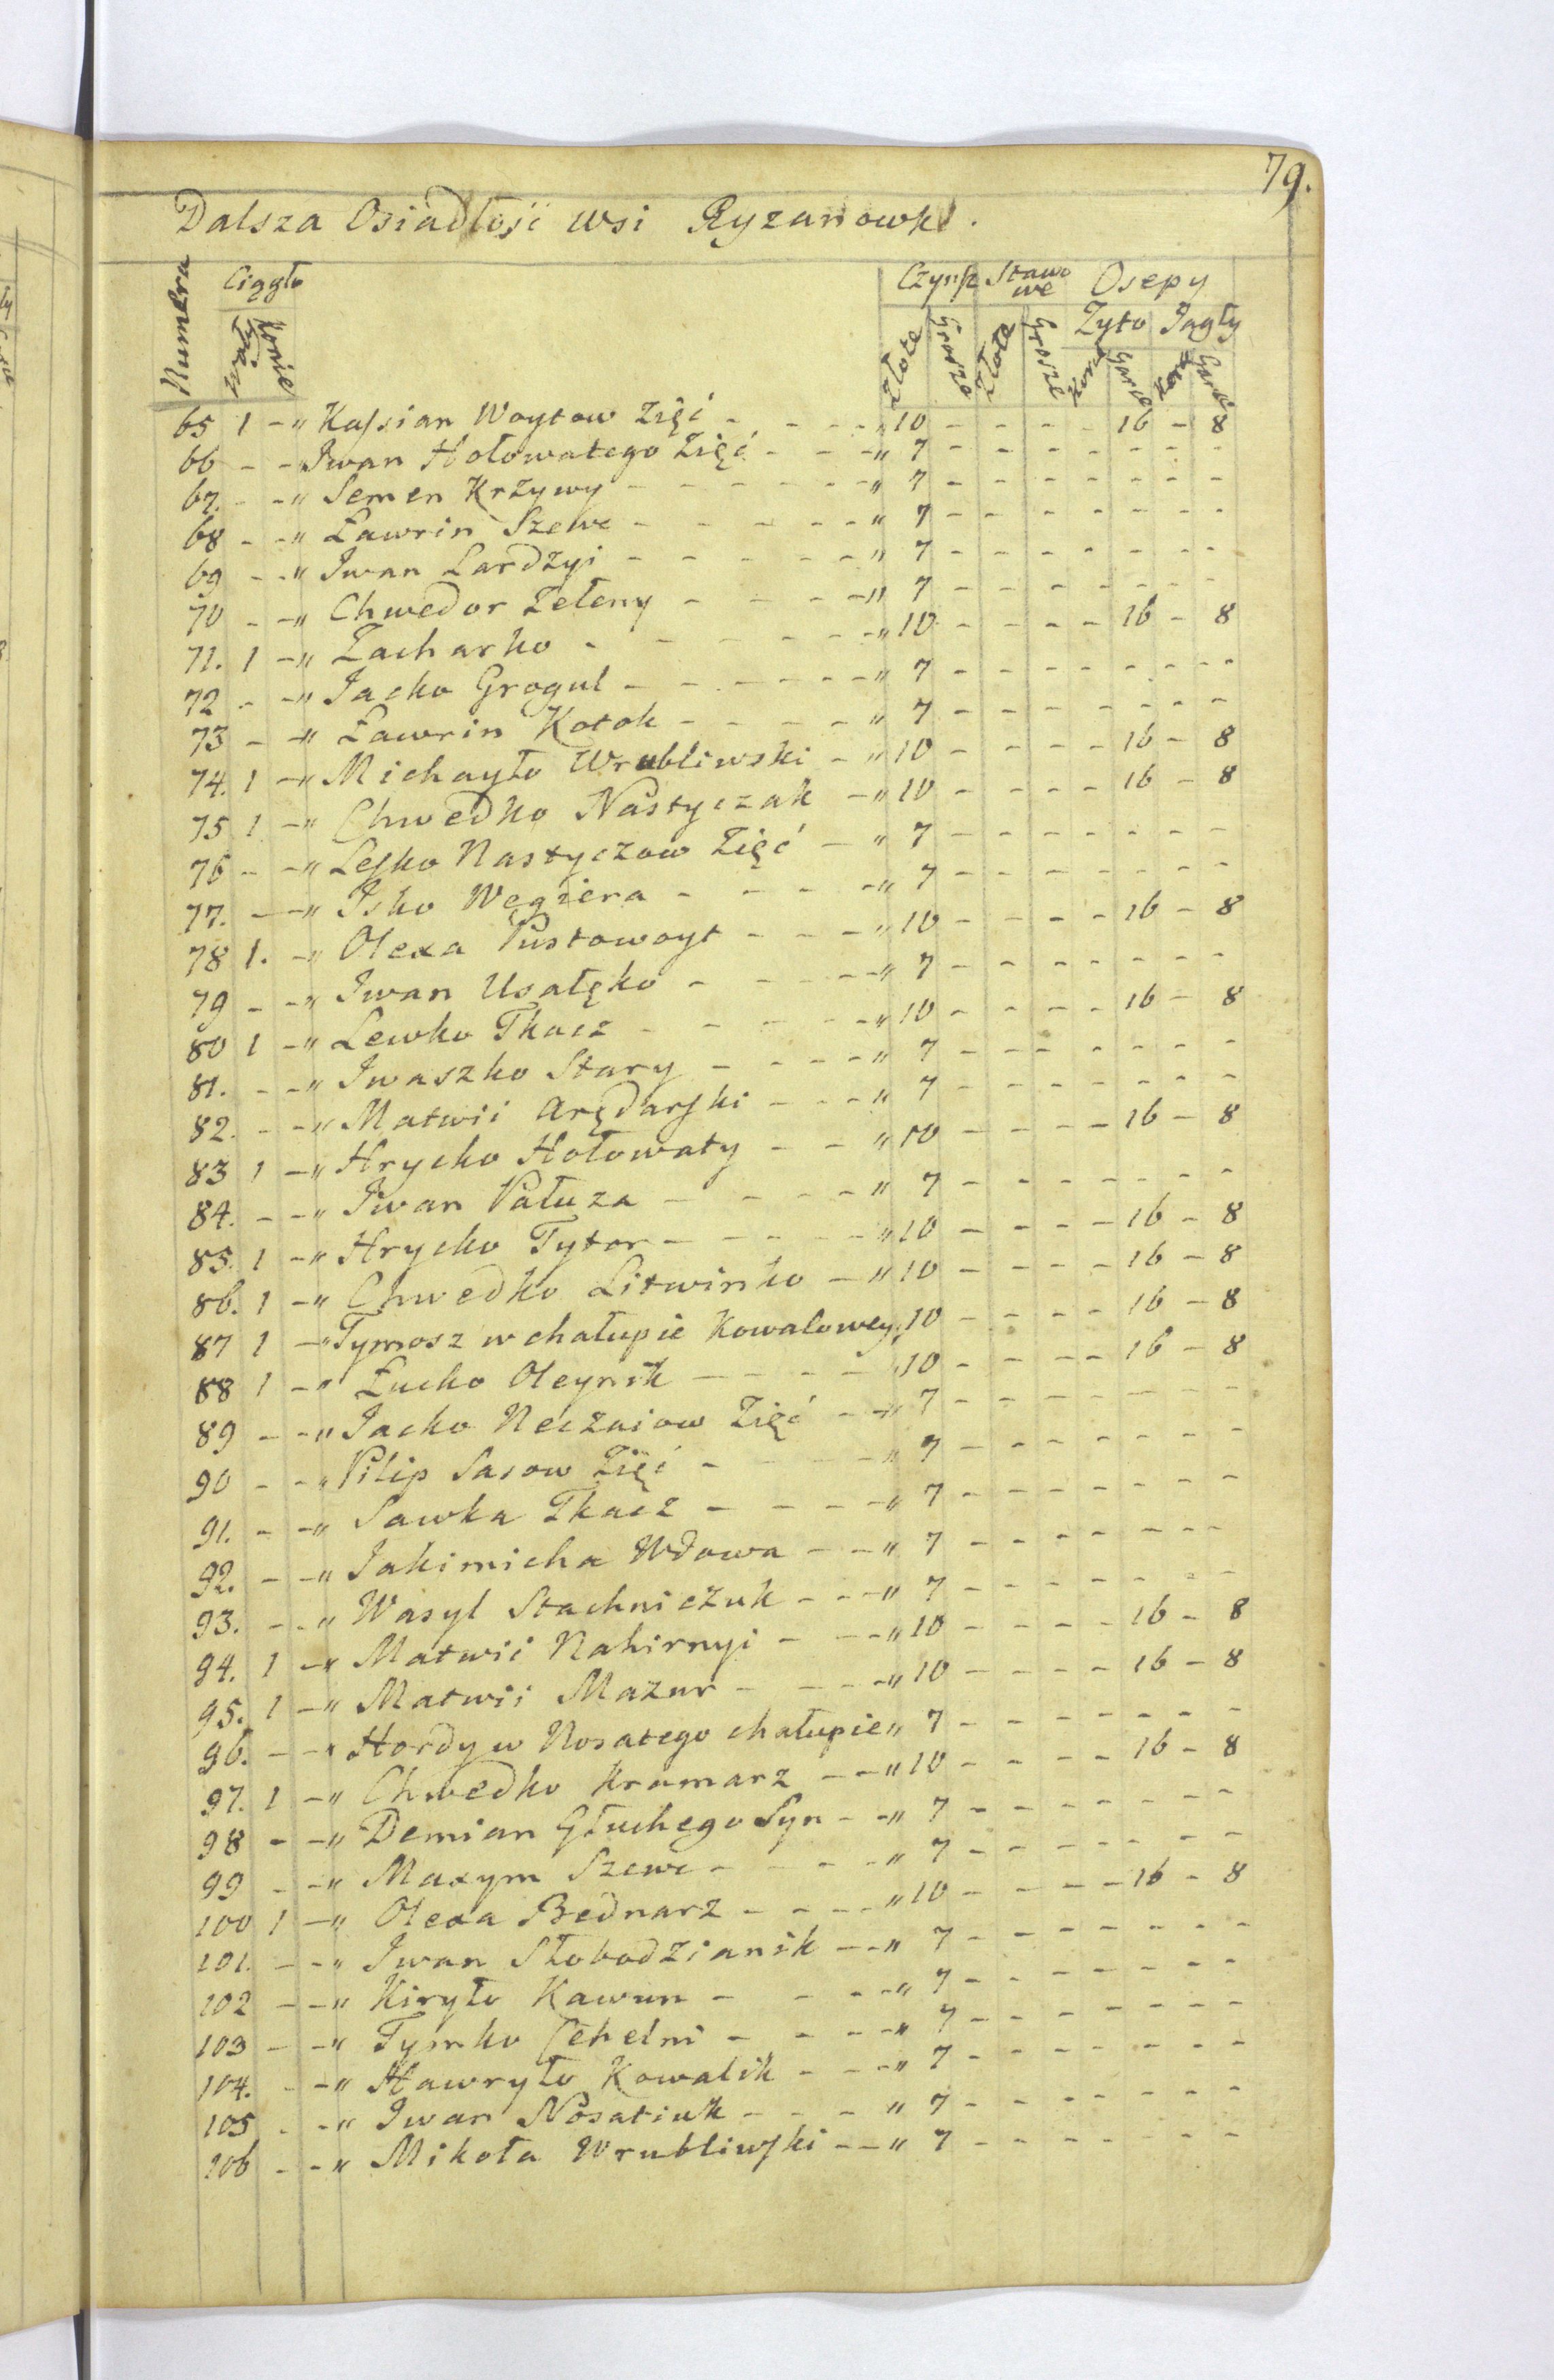 79.
Dalsza Osiadłość wsi Ryzanowki.
Numera Ciągło Czynsz Stawowe Osepy
Żyto Jagły
Konie Złote Grosze Złote Grosze Garce Garce
65 1 - " Kassian Woytow Zięć - - - - " 10 - - - - - 16 - 8
66 - - Iwan Hołowatego Zięć - - - " 7 - - - - - - - -
67. - - " Semen Krzywy - - - - - - " 7 - - - - - - - -
68 - - " Ławrin Szewc - - - - - " 7 - - - - - - - -
69 - - " Iwan Lardzyi - - - - - - " 7 - - - - - - - -
70 - - " Chwedor Zeleny - - - - " 7 - - - - - - - -
71. 1 - " Zacharko - - - - - - - " 10 - - - - - 16 - 8
72 - - " Jacko Grogul - - - - - - - " 7 - - - - - - - -
73 - - " Ławrin Kotok - - - - - " 7 - - - - - - - -
74. 1 - " Michayło Wrubliwski - " 10 - - - - - 16 - 8
75 1 - " Chwedko Nastyczak - " 10 - - - - - 16 - 8
76 - - " Lesko Nastyczow Zięć - " 7 - - - - - - - -
77. - - " Isko Węgiera - - - - - " 7 - - - - - - - -
78 1. - " Olexa Pustowoyt - - - - " 10 - - - - - 16 - 8
79 - - " Iwan Usatęko - - - - - " 7 - - - - - - - -
80 1 - " Lewko Tkacz - - - - - - " 10 - - - - - 16 - 8
81. - - " Iwaszko Stary - - - - - " 7 - - - - - - - -
82. - - " Matwii Arędarski - - - - " 7 - - - - - - - -
83 1 - " Hrycko Hołowaty - - - " 10 - - - - - 16 - 8
84. - - " Iwan Pałuza - - - - - " 7 - - - - - - - -
85. 1 - " Hrycko Tytor - - - - - - " 10 - - - - - 16 - 8
86. 1 - " Chwedko Litwinko - " 10 - - - - - 16 - 8
87 1 - " Tymosz w chałupie Kowalowey " 10 - - - - - 16 - 8
88 1 - " Łucko Oleynik - - - - - " 10 - - - - - 16 - 8
89 - - " Jacko Neczaiow Zięć - - " 7 - - - - - - - -
90 - - " Pilip Sasow Zięć - - - - " 7 - - - - - - - -
91. - - " Sawka Tkacz - - - - - " 7 - - - - - - - -
92. - - " Jakimicha Wdowa - - - " 7 - - - - - - - -
93. - - " Wasyl Stachniczuk - - - " 7 - - - - - - - -
94. 1 - " Matwii Nahirnyi - - - - " 10 - - - - - 16 - 8
95. 1 - " Matwii Mazur - - - - - " 10 - - - - - 16 - 8
96. - - " Hordy w Nosatego chałupie " 7 - - - - - - - -
97. 1 - " Chwedko Kramarz - - - " 10 - - - - - 16 - 8
98 - - " Demian Głuchego Syn - - " 7 - - - - - - - -
99 - - " Maxym Szewc - - - - - " 7 - - - - - - - -
100 1 - " Olexa Bednarz - - - - - " 10 - - - - - 16 - 8
101. - - " Iwan Słobodzianik - - - " 7 - - - - - - - -
102 - - " Kiryło Kawun - - - - - " 7 - - - - - - - -
103 - - " Tymko Cehelni - - - - - " 7 - - - - - - - -
104. - - " Hawryło Kowalik - - - - " 7 - - - - - - - -
105 - - " Iwan Nosatiuk - - - - " 7 - - - - - - - -
106 - - " Mikoła Wrubliwski - - - " 7 - - - - - - - -